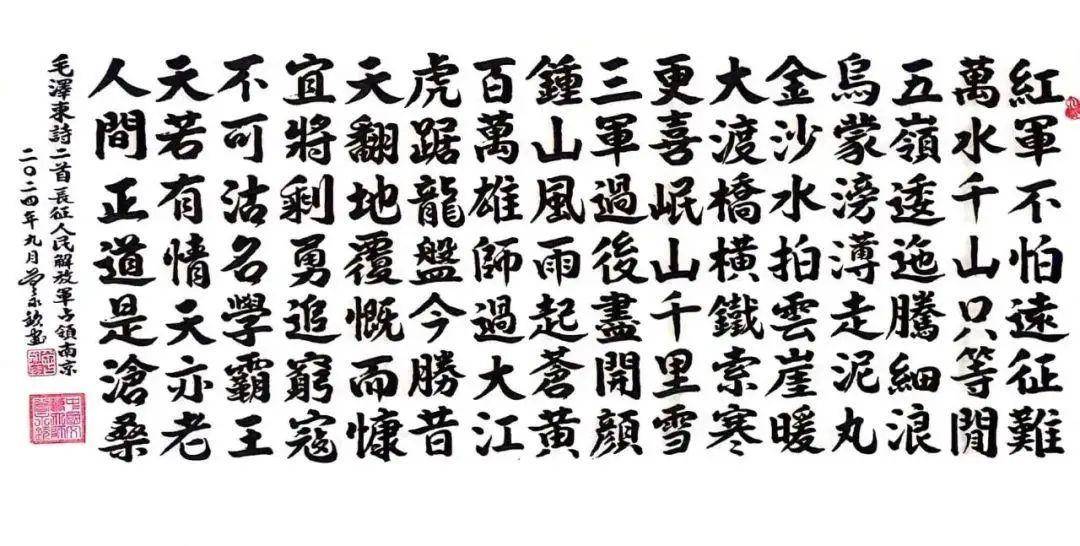 紅軍不怕遠征難
萬水千山只等閒
五嶺逶迤騰細浪
烏蒙滂薄走泥丸
金沙水拍雲崖暖
大渡橋橫鐵索寒
更喜岷山千里雪
三軍過後盡開顏
鍾山風雨起蒼黃
百萬雄師過大江
虎踞龍盤今勝昔
天翻地覆慨而慷
宜將剩勇追窮寇
不可沽名學霸王
天若有情天亦老
人間正道是滄桑
毛澤東詩二首長征人民解放軍占領南京
二〇二四年九月永欽書